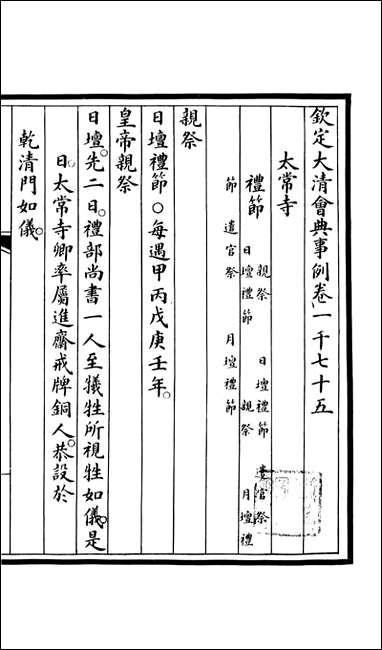 欽定大清會典事例卷一千七十五
太常寺
禮節
親祭　日壇禮節　遣官祭
日壇禮節　親祭　月壇禮
節　遣官祭　月壇禮節
親祭
日壇禮節○每遇甲丙戊庚壬年。
皇帝親祭
日壇。先二日。禮部尚書一人至犧牲所視牲如儀。是
日。太常寺卿率屬進齋戒牌銅人。恭設於
乾清門如儀。